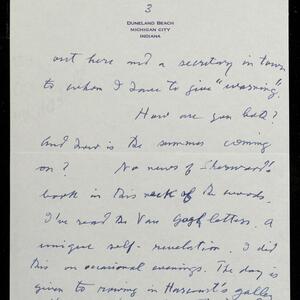 3
DUNELAND BEACH
MICHIGAN CITY
INDIANA
out here and a secretary in town
to whom I have to give "warning".
How are you both?
And how is the summer coming
on? No news of Sherwood's
book in this neck of the woods.
I've read the Van Gogh letters. A
unique self-revelation. I did
this on occasional evenings. The day is
given to rowing in Harcourt's galley